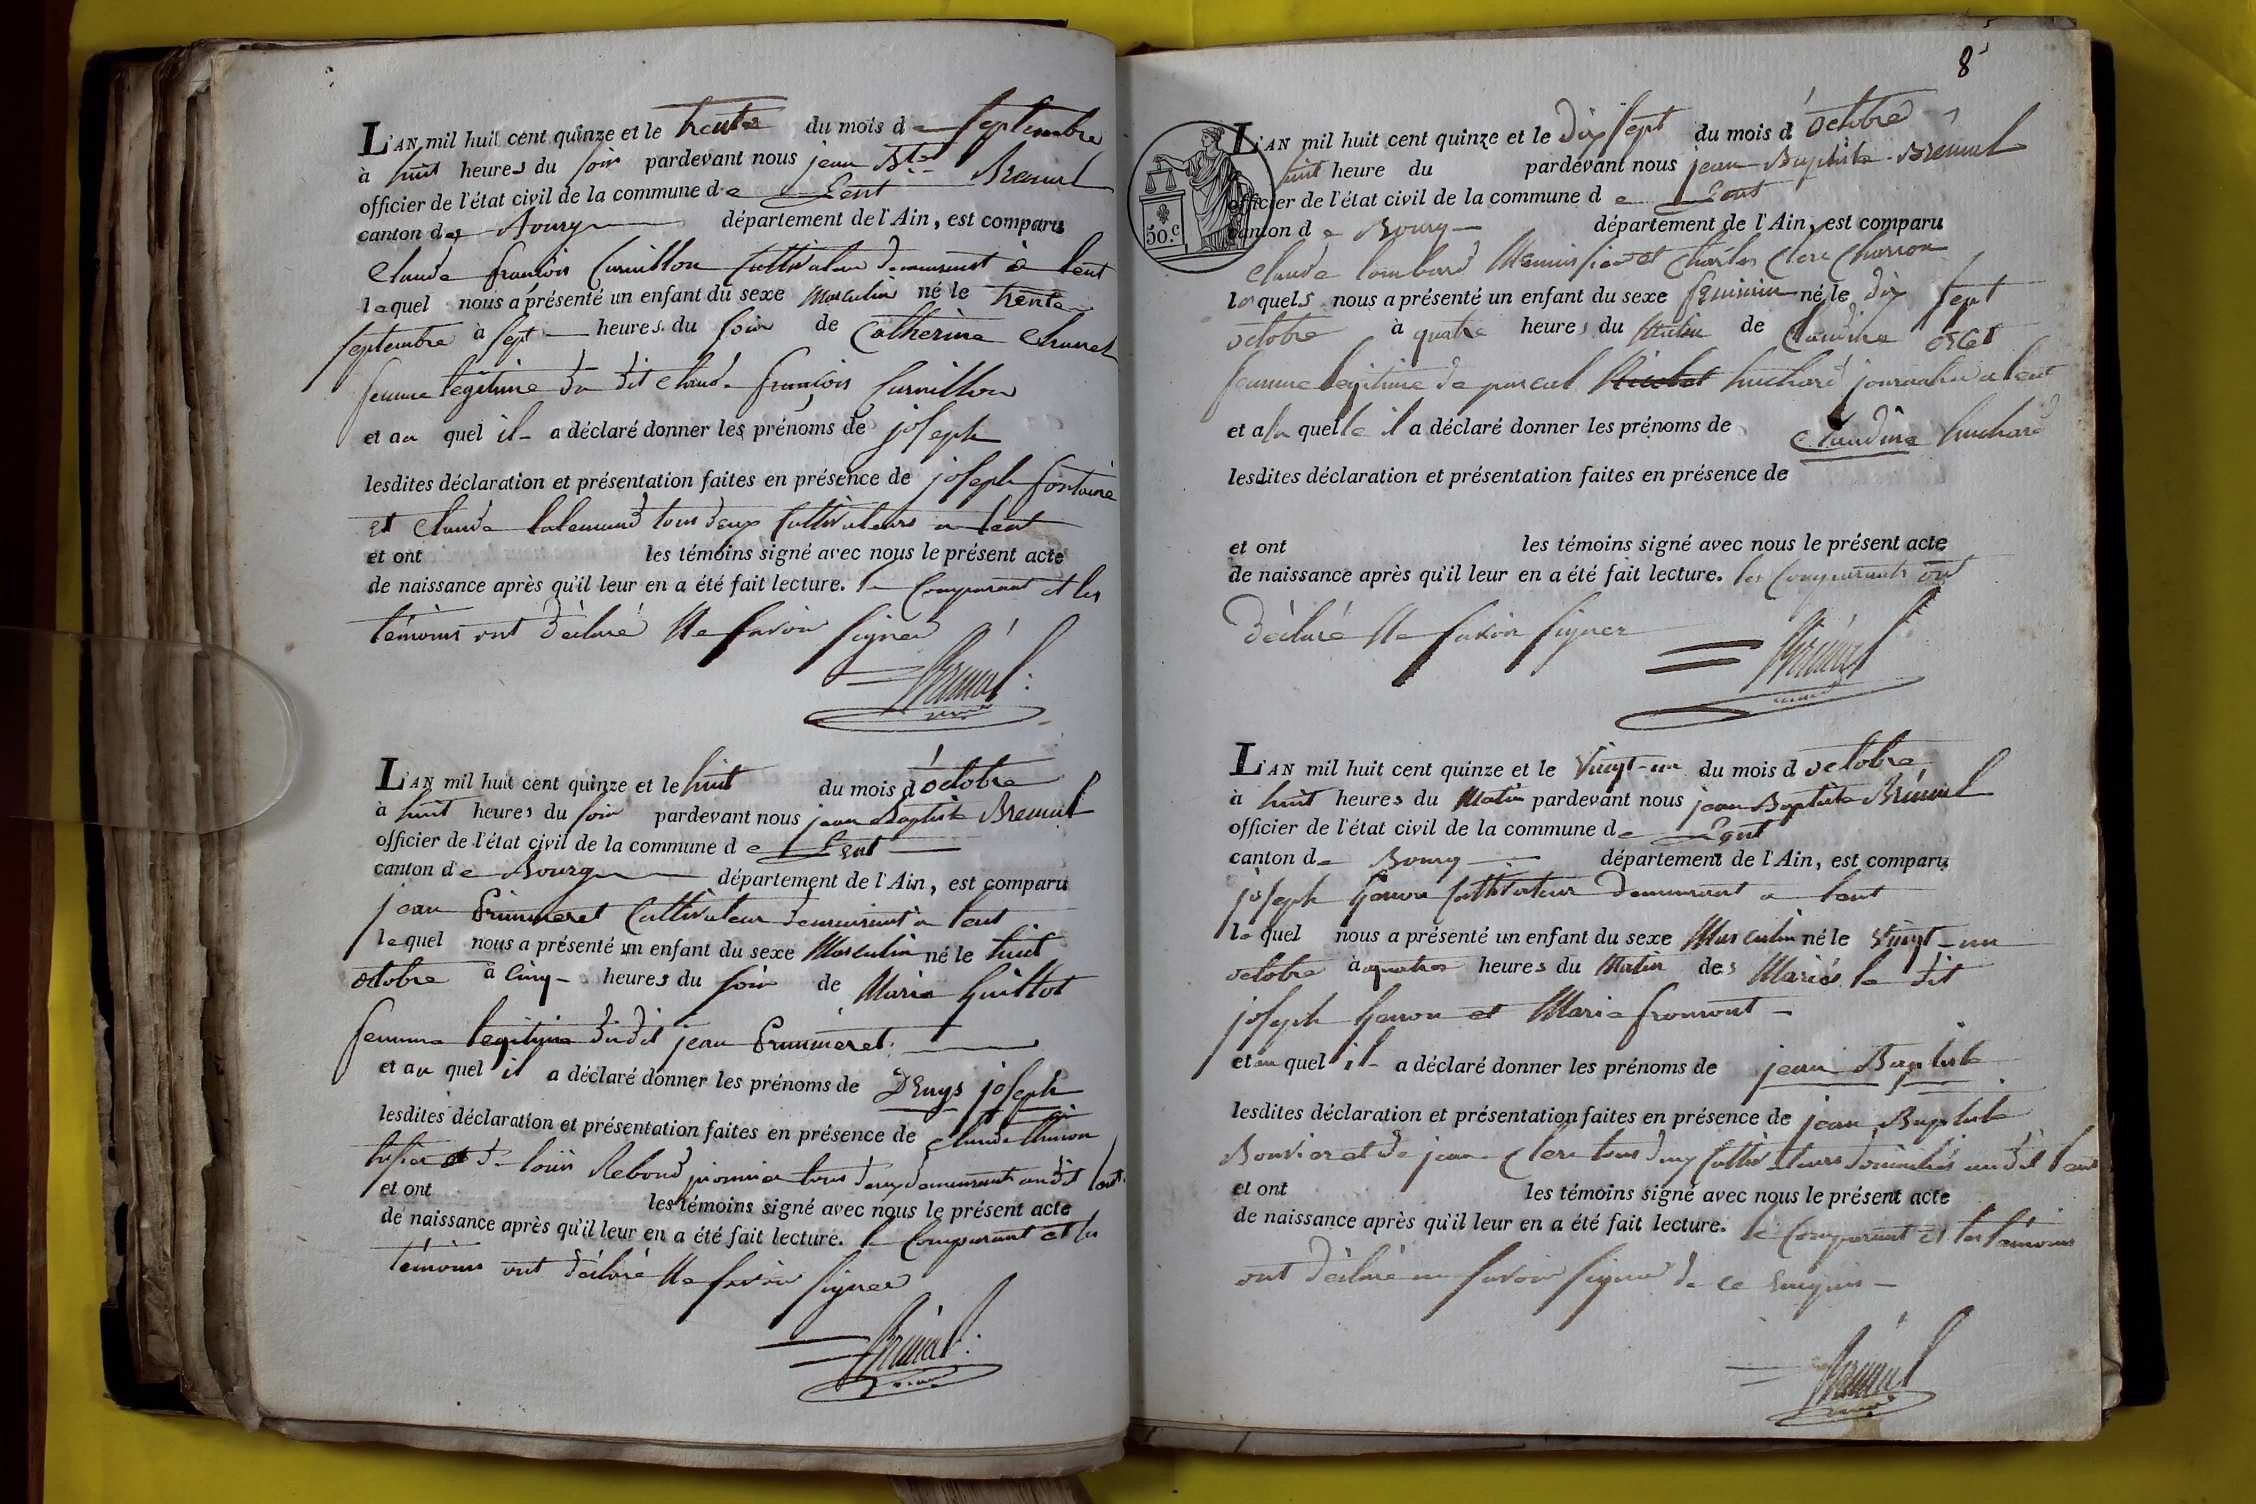 L'AN mil huit cent quinze et le trente du mois de septembre
à huit heures du soir pardevant nous jean Bte Brevet
officier de l'état civil de la commune de Lent
canton de Bourg département de l'Ain, est comparu
Claude françois Curvillon Cultivateur demeurant à lent
lequel nous a présenté un enfant du sexe Masculin né le trente
septembre à sept heures du soir de Catherine
femme legitime du dit Claude françois Curvillon
et au quel il a déclaré donner les prénoms de joseph
lesdites déclaration et présentation faites en présence de joseph fontaine
et Claude lalemand tous deux Cultivateurs a lent
et ont les témoins signé avec nous le présent acte
de naissance après qu'il leur en a été fait lecture. le Comparant et les
témoins ont déclaré Ne savoir signer
L'AN mil huit cent quinze et le huit du mois d'octobre
à huit heures du soir pardevant nous jean Baptiste
officier de l'état civil de la commune de Lent
canton de Bourg département de l'Ain, est comparu
jean Cultivateur demeurant a lent
lequel nous a présenté un enfant du sexe Masculin né le huit
octobre à Cinq heures du soir de Marie Guillot
femme legitime du dit jean
et au quel il a déclaré donner les prénoms de Denys joseph
lesdites déclaration et présentation faites en présence de Claude
et de louis Rebond tous deux demeurants audit lent
et ont les témoins signé avec nous le présent acte
de naissance après qu'il leur en a été fait lecture. le Comparant et les
témoins ont déclaré Ne savoir signer
8
50.c
L'AN mil huit cent quinze et le dix sept du mois d'octobre
à huit heure du pardevant nous jean Baptiste
officier de l'état civil de la commune de Lent
canton de Bourg département de l'Ain, est comparu
Claude lombard Menuisier et Charles Clerc Charron
lesquels nous a présenté un enfant du sexe féminin né le dix sept
octobre à quatre heures du Matin de Claudine
femme legitime de pascal huchard journalier a lent
et a la quelle il a déclaré donner les prénoms de Claudine huchard
lesdites déclaration et présentation faites en présence de
et ont les témoins signé avec nous le présent acte
de naissance après qu'il leur en a été fait lecture. les Comparants ont
déclaré Ne savoir signer
L'AN mil huit cent quinze et le Vingt-un du mois d octobre
à huit heures du Matin pardevant nous jean Baptiste
officier de l'état civil de la commune de Lent
canton de Bourg département de l'Ain, est comparu
joseph Cultivateur demeurant a lent
lequel nous a présenté un enfant du sexe Masculin né le Vingt-un
octobre à quatre heures du Matin des Mariés le dit
joseph et Marie fromont
et au quel il a déclaré donner les prénoms de jean Baptiste
lesdites déclaration et présentation faites en présence de jean Baptiste
Bouvier et de jean Clerc tous deux Cultivateurs domiciliés audit lent
et ont les témoins signé avec nous le présent acte
de naissance après qu'il leur en a été fait lecture. le Comparant et les témoins
ont déclaré ne savoir signer de ce enquis